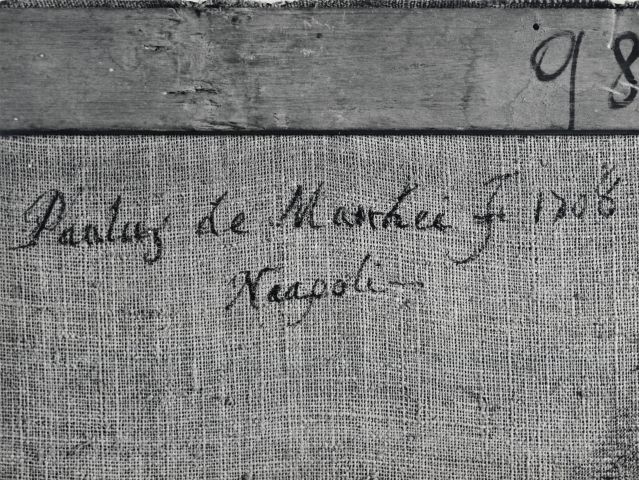 98
Paulus de Matthei F. 1708
Naapoli